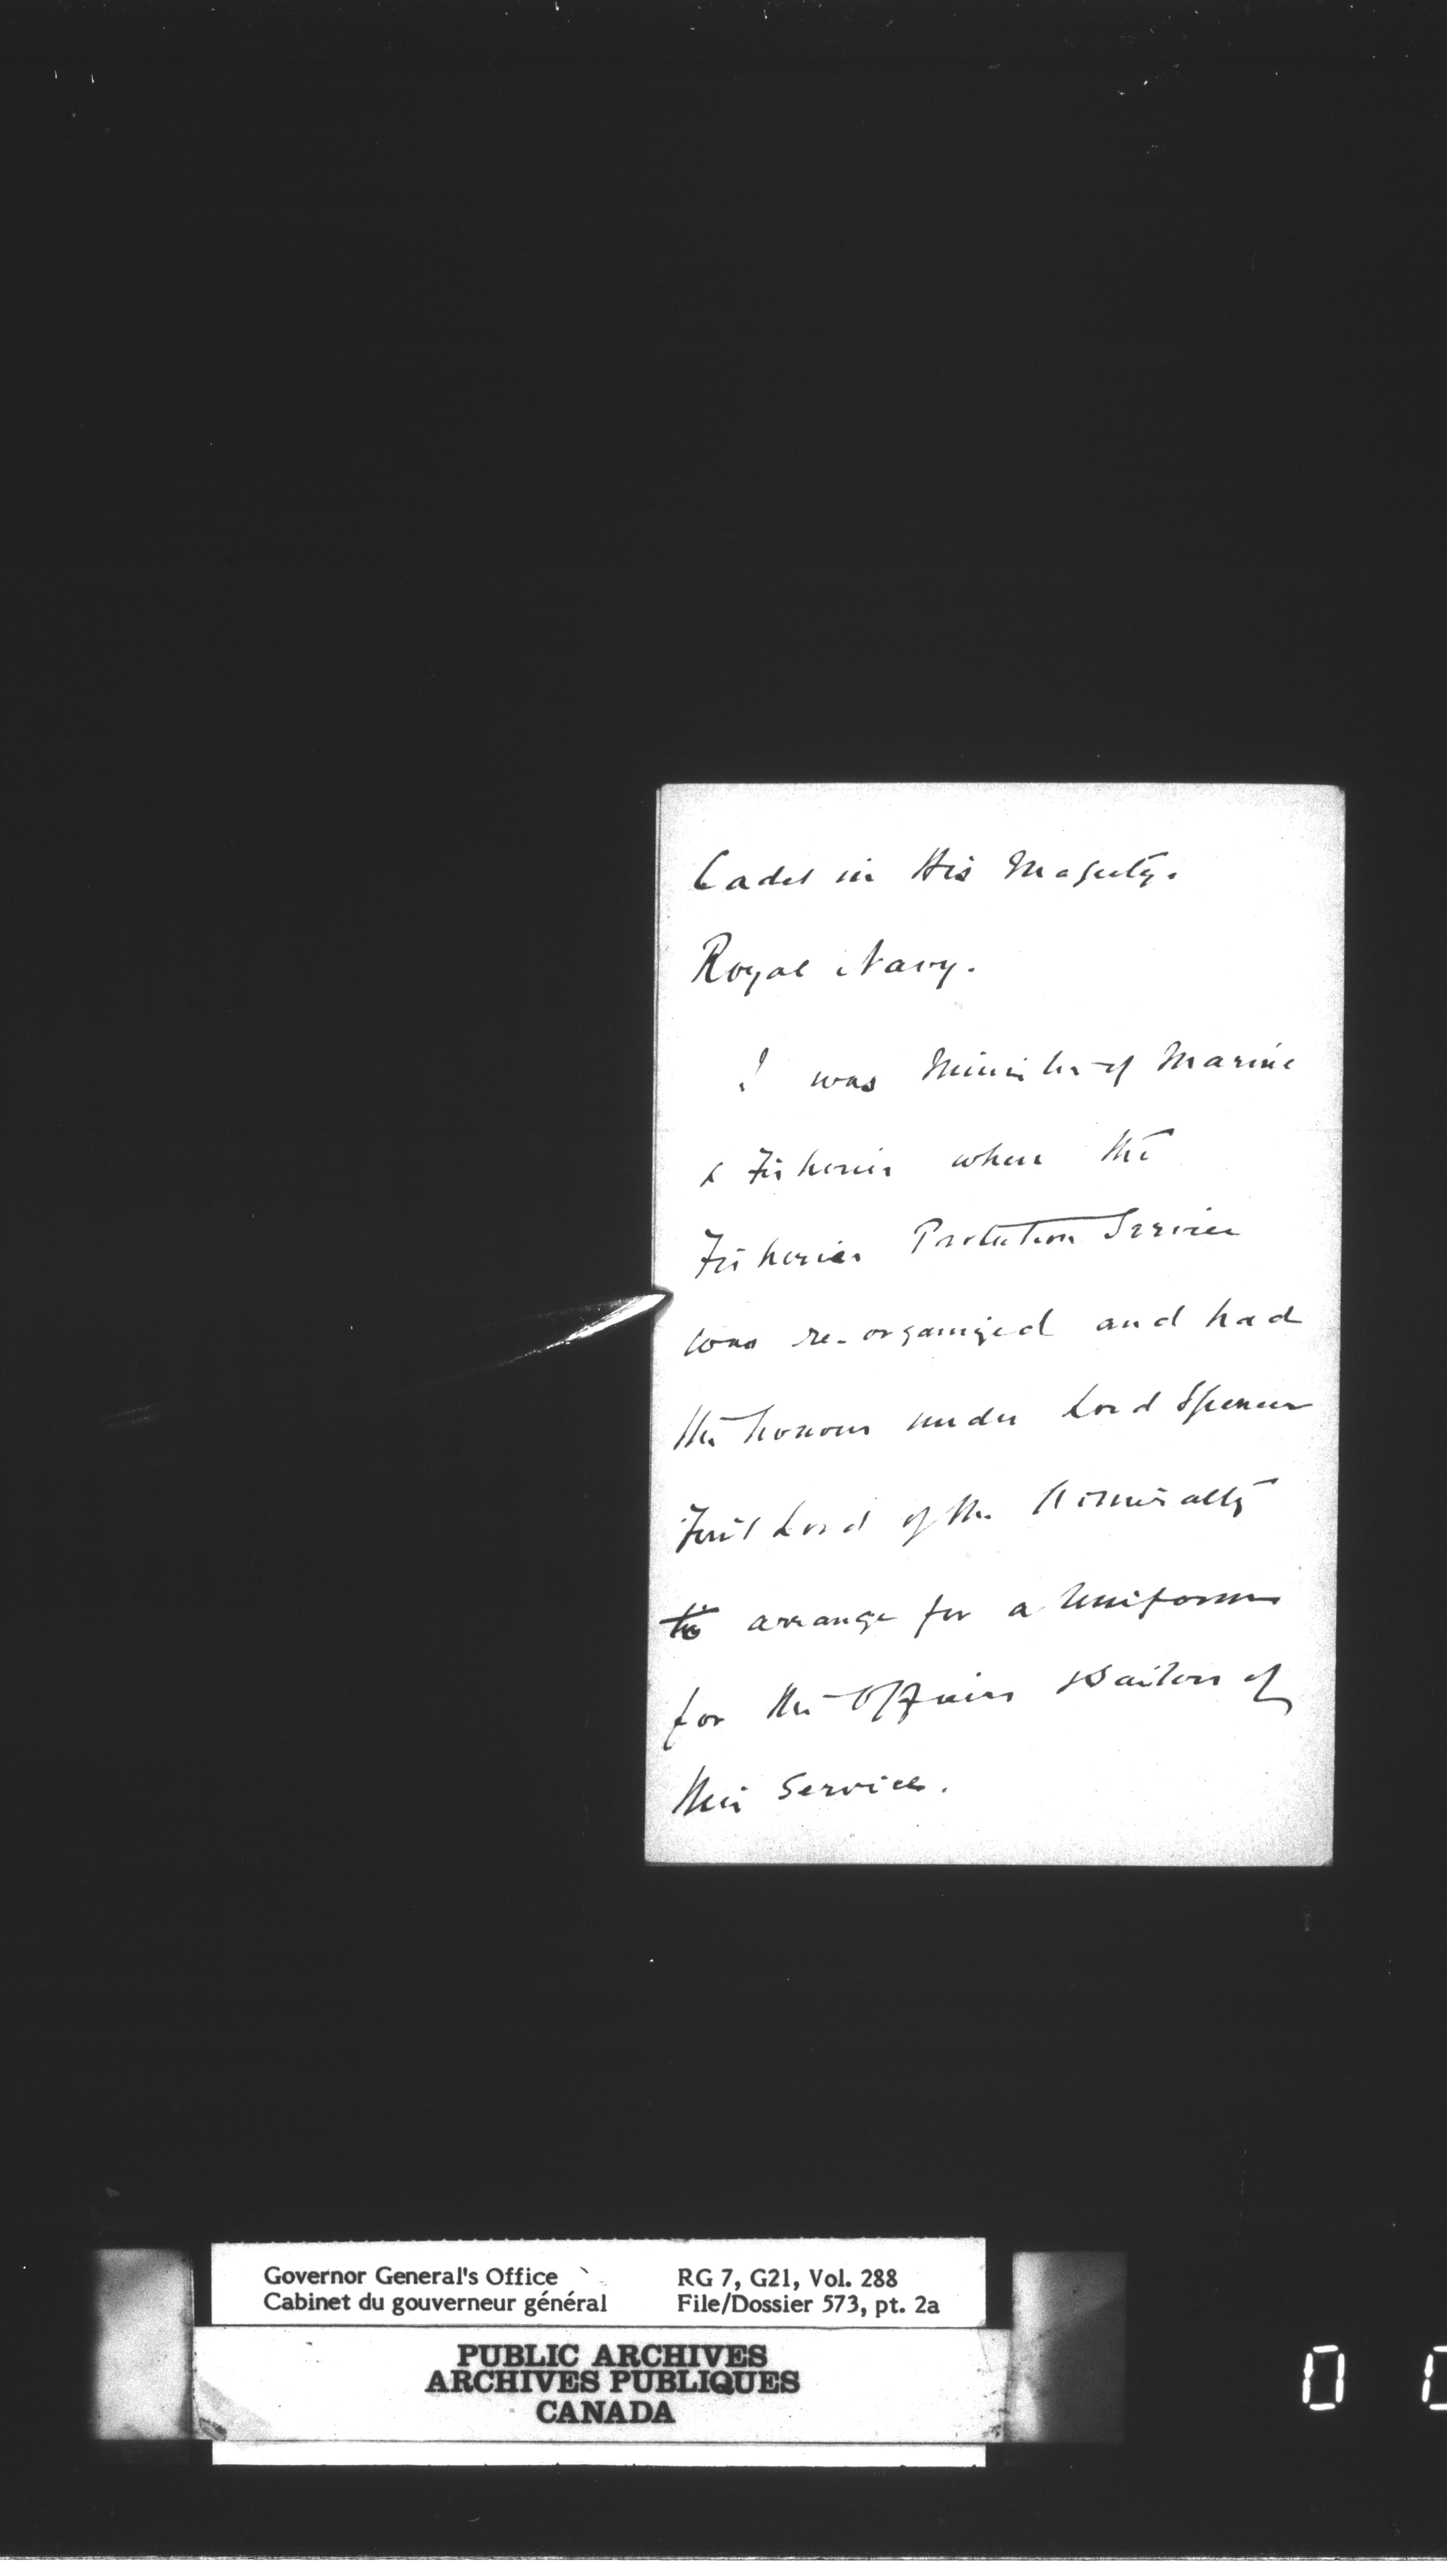 Cadet in His Majesty's
Royal Navy.
I was Minister of Marine
& Fisheries when the
Fisheries Protection Service
was re-organized and had
the honour under Lord Spencer
First Lord of the Admiralty
to arrange for a Uniform
for the Officers & Sailors of
this Service.
Governor General's Office
Cabinet du gouverneur général
RG 7, G21, Vol. 288
File/Dossier 573, pt. 2a
PUBLIC ARCHIVES
ARCHIVES PUBLIQUES
CANADA
0 0